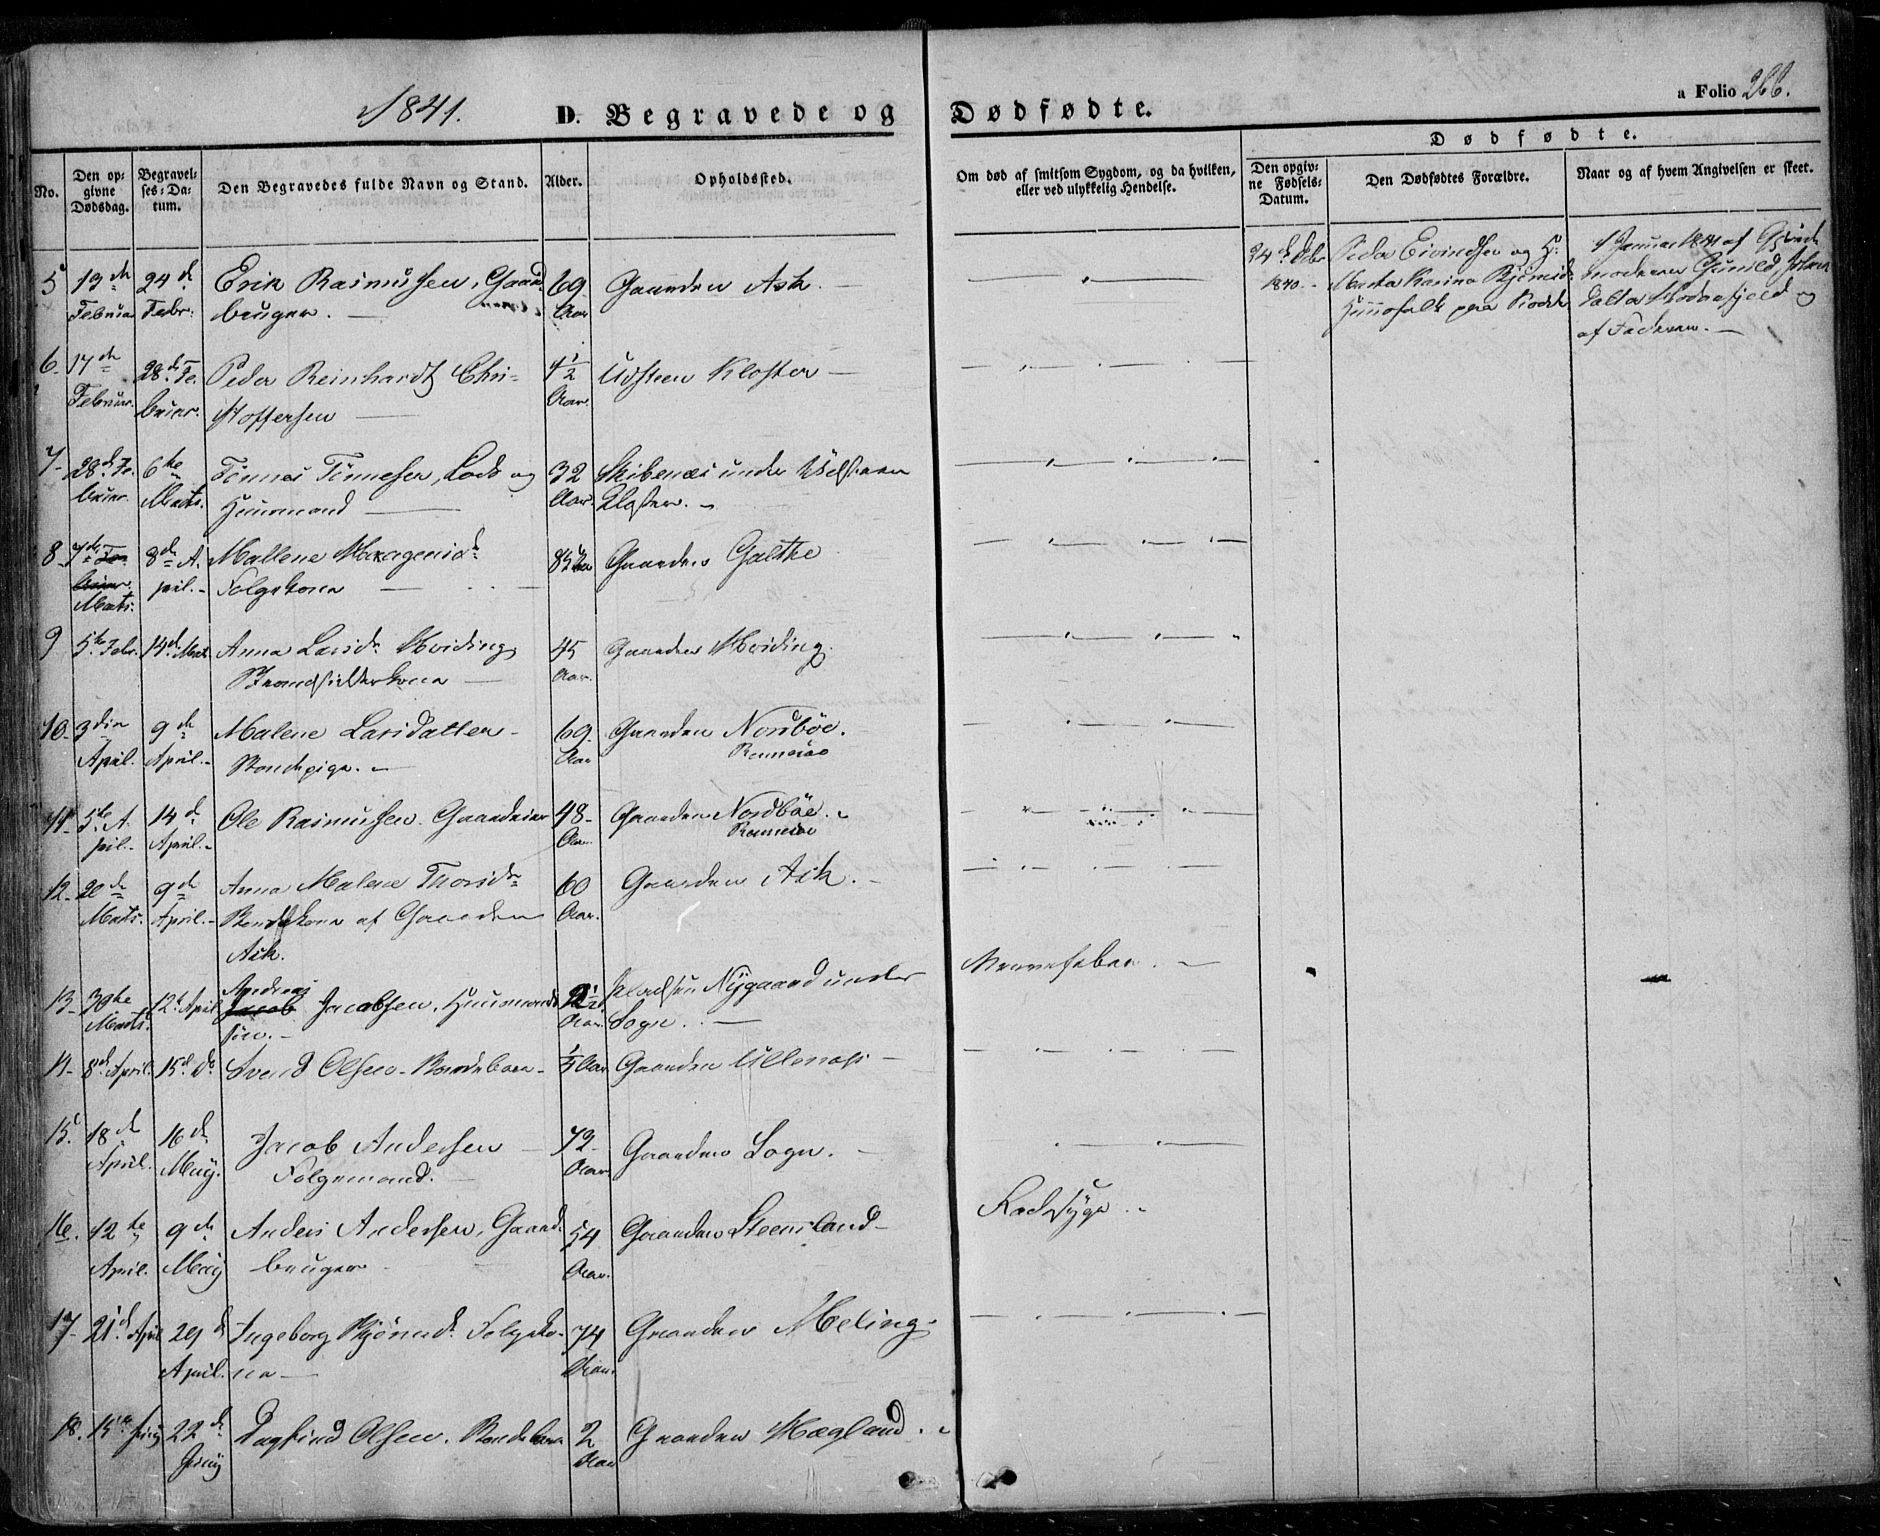 1841.
D. Begravede og Dødfødte.
a Folio 266.
No.
Den opgivne Dødsdag.
Begravelses-Datum.
Den Begravedes fulde Navn og Stand.
Alder.
Opholdssted.
Om død af smitsom Sygdom, og da hvilken, eller ved ulykkelig Hendelse.
Dødfødte.
Den opgivne Fødsels-Datum.
Den Dødfødtes Forældre.
Naar og af hvem Angivelsen er skeet.
5 13de Februar 24d Febr: Erik Rasmussen, Gaardbruger. 69 Aar Gaarden Ask.
1840. Peder Eivindsen og H:
Huusfolk paa
af Faderen.
6. 17de Februar. 28d Februar. Peder Reinhardt Christoffersen 4½ Aar. Udsteen Kloster
7- 28d Februar 6te Marts. Tønnes Tønnesen, Lods og Huusmand 32 Aar. Skibenæs under Udsteen Kloster.
8- 7de Februar. Marts. 8de April. Mallene Folgekone 85 Aar Gaarden Galthe
9 5te Febr. 14d Marts Anna Larsdr Hviding 45 Aar. Gaarden Hviding.
10- 3die April. 9de April. Malene Larsdatter 69- Aar Gaarden Nordbøe. Rennesøe
11- 5te April. 14d April. Ole Rasmussen Gaardeier 48- Aar. Gaarden Nordbøe. Rennesøe
12- 20de Marts. 9de April. Anna Malene Thorsdr Bondekone af Gaarden Ask. 60 Aar. Gaarden Ask.
13- 30te Marts. 12t April Andreas Jacob Jacobsen, Huusmands søn. Aar. Pladsen Nygaard under Sogn. Nervefeber.
14- 8d April. 15d Do Svend Olsen. Bondebarn Aar. Gaarden Ullenæs
15. 18de April. 16d May. Jacob Andersen Folgemand. 72- Aar Gaarden Sogn.
16. 12te April. 9de May Anders Andersen, Gaardbruger 54 Aar. Gaarden Steensland Radesyge.
17- 21d April 29d April. Ingeborg Folgekone 74 Aar. Gaarden Meling
18. 15de Juny 22d Juny Dagfind Olsen. Bondebarn 2 Aar Gaarden Hægland.